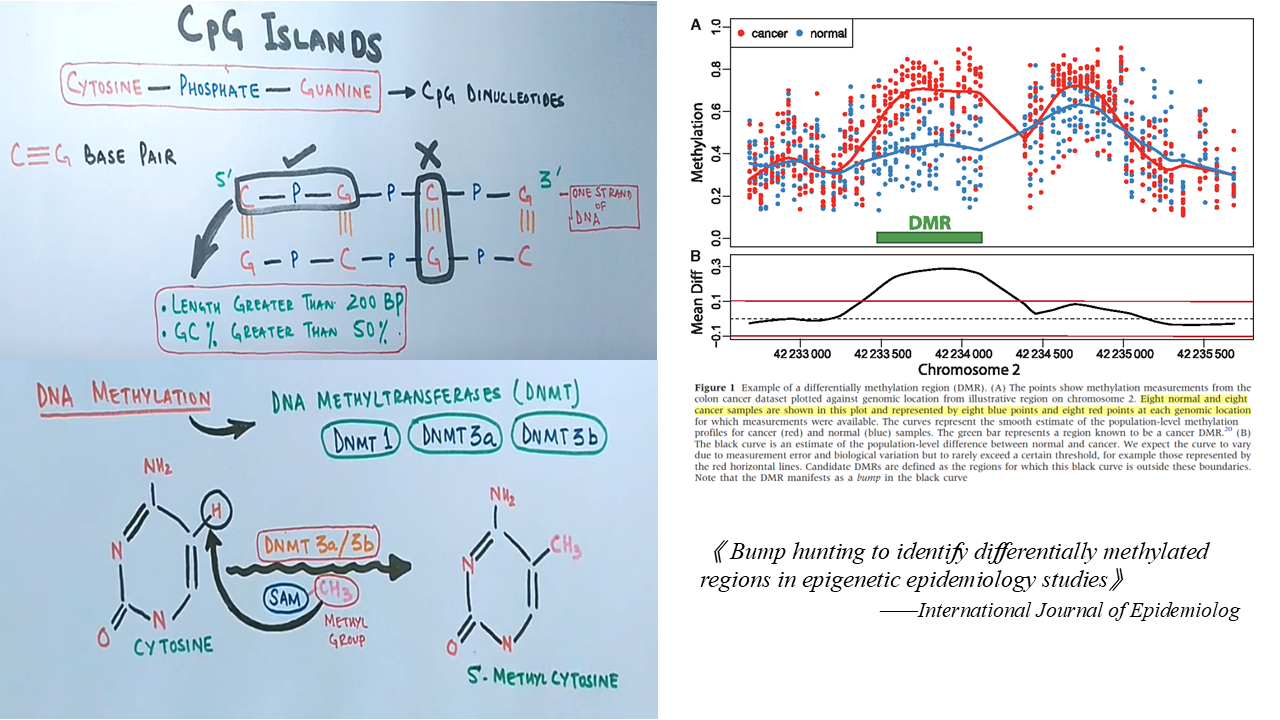 CpG ISLANDS
CYTOSINE — PHOSPHATE — GUANINE → CpG DINUCLEOTIDES
C≡G BASE PAIR
✓ X
5' C — P — G — P — C — P — G 3' – ONE STRAND
OF
DNA
G — P — C — P — G — P — C
• LENGTH GREATER THAN 200 BP
• GC % GREATER THAN 50%.
DNA METHYLATION
DNA METHYLTRANSFERASES (DNMT)
DNMT 1 DNMT 3a DNMT 3b
NH₂
H
N
O
N
CYTOSINE
DNMT 3a/3b
SAM CH₃
METHYL
GROUP
NH₂
CH₃
N
O
N
5'-METHYLCYTOSINE
A
cancer normal
Methylation
1.0
0.8
0.6
0.4
0.2
0.0
DMR
B
Mean Diff
0.3
0.1
−0.1
42 233 000 42 233 500 42 234 000 42 234 500 42 235 000 42 235 500
Chromosome 2
Figure 1 Example of a differentially methylation region (DMR). (A) The points show methylation measurements from the
colon cancer dataset plotted against genomic location from illustrative region on chromosome 2. Eight normal and eight
cancer samples are shown in this plot and represented by eight blue points and eight red points at each genomic location
for which measurements were available. The curves represent the smooth estimate of the population-level methylation
profiles for cancer (red) and normal (blue) samples. The green bar represents a region known to be a cancer DMR.²⁰ (B)
The black curve is an estimate of the population-level difference between normal and cancer. We expect the curve to vary
due to measurement error and biological variation but to rarely exceed a certain threshold, for example those represented by
the red horizontal lines. Candidate DMRs are defined as the regions for which this black curve is outside these boundaries.
Note that the DMR manifests as a bump in the black curve
《Bump hunting to identify differentially methylated
regions in epigenetic epidemiology studies》
——International Journal of Epidemiolog